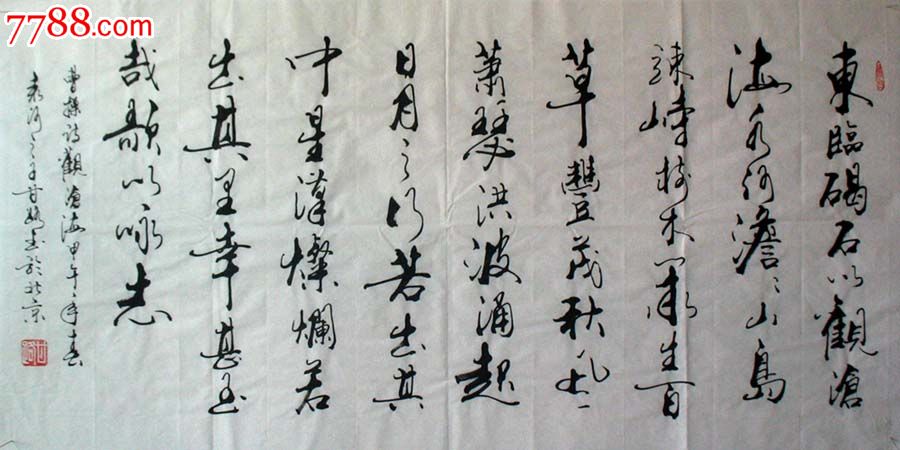 7788.com
東臨碣石以觀滄
海水何澹〻山島
竦峙樹木叢生百
草豐茂秋風
蕭瑟洪波涌起
日月之行若出其
中星漢燦爛若
出其里幸甚至
哉歌以咏志
曹操詩觀滄海甲午年春
書於北京